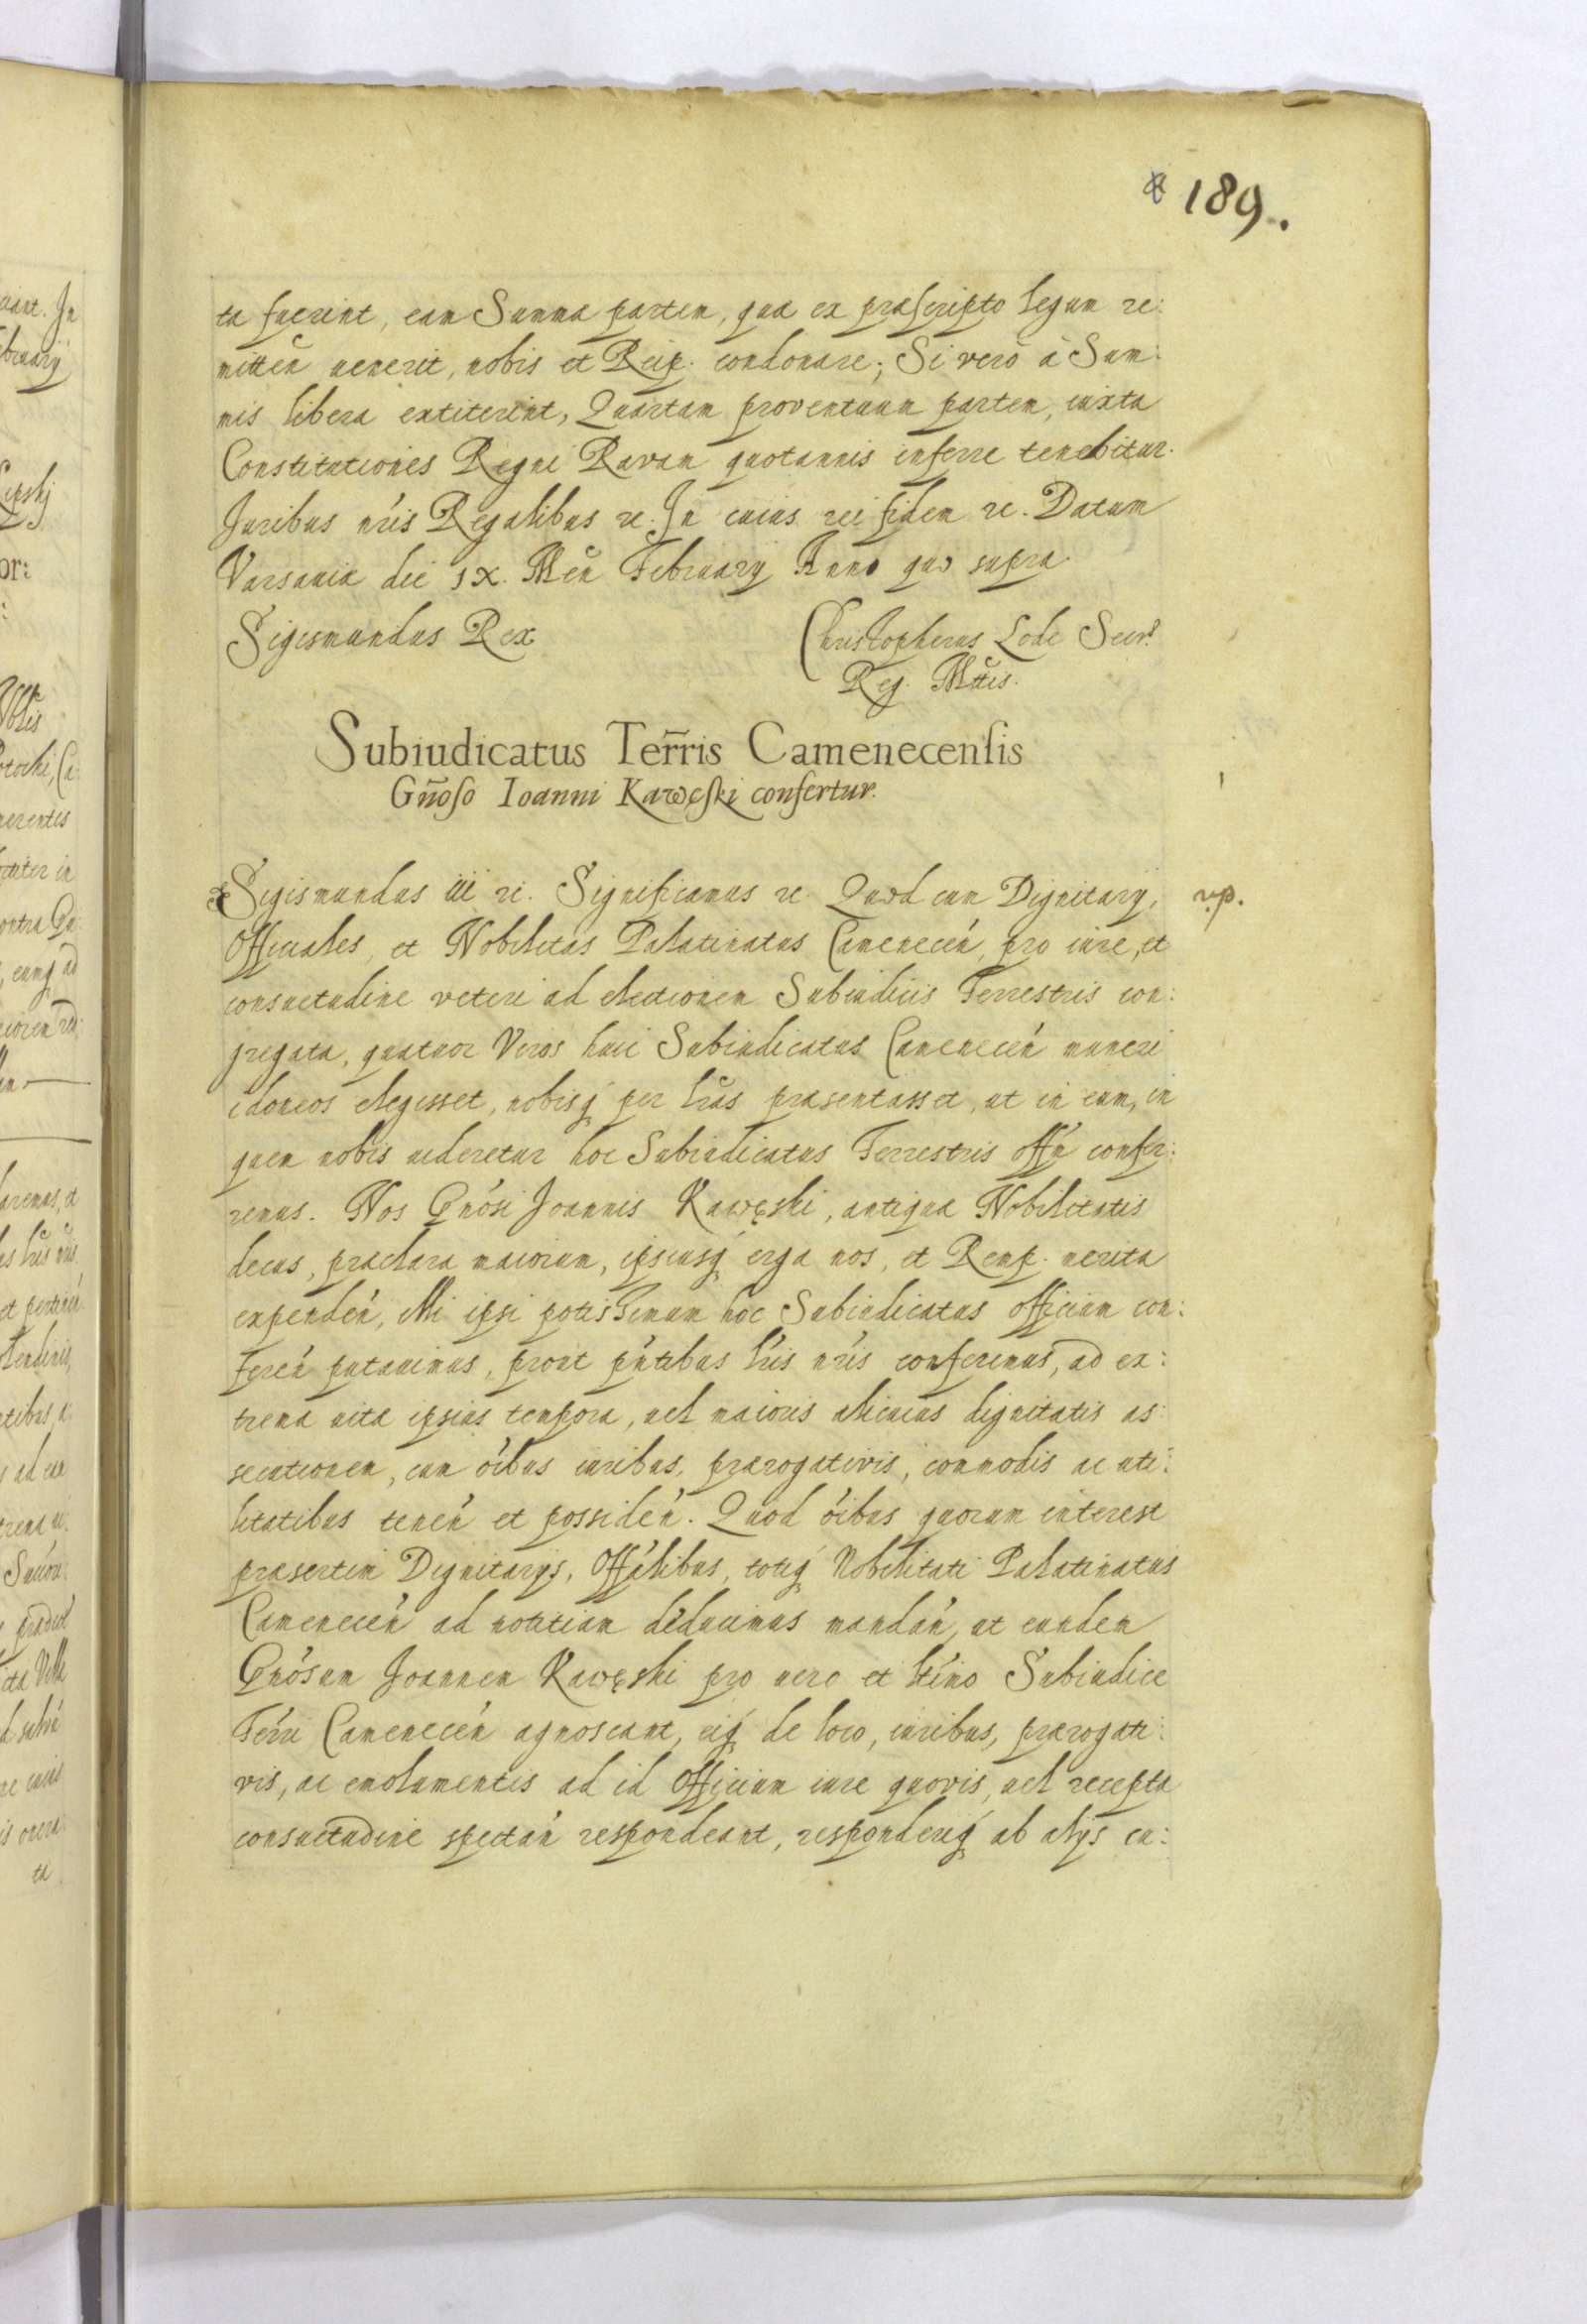 189.
ta fuerint, eam Summa partem, qua ex praescripto legum re:
mitten̄ uenerit, nobis et Reip. condonare; Si verò à Sum:
mis libera extiterint, Quartam proventuum partem, iuxta
Constitutiones Regni Ravam quotannis inferre tenebitur.
Juribus nr̄is Regalibus rc. In cuius rei fidem rc. Datum
Varsauia die IX. Men̄ February Anno quo supra
Sigismundus Rex
Christopherus Lode Secr̄s
Reg. Mttis.
Subiudicatus Ter̄ris Camenecensis
Gn̄oso Ioanni Kawęski confertur.
Sigismundus iii rc. Significamus rc. Quod cum Dignitarij,
rp.
Officiales, et Nobilitas Palatinatus Camenecen̄, pro iure, et
consuetudine veteri ad electionem Subiudicis Terrestris con:
gregata, quatuor Viros huic Subiudicatus Camenecen̄ muneri
idoneos elegisset, nobisq́ per lr̄as praesentasset, ut in eum, in
quem nobis uideretur hoc Subiudicatus Terrestris offn̄ confer:
remus. Nos Gn̄osi Joannis Kawęski, antiqua Nobilitatis
decus, praeclara maiorum, ipsiusq́ erga nos, et Remp. merita
expenden̄, illi ipsi potissimum hoc Subiudicatus officium con:
feren̄ putauimus, prout pn̄tibus lr̄is nr̄is conferimus, ad ex:
trema uita ipsius tempora, uel maioris alicuius dignitatis as:
secutionem, cum oībus iuribus, praerogativis, commodis ac uti:
litatibus tenen̄ et possiden̄. Quod oībus quorum interest
praesertim Dignitarijs, Offālibus, totiq́ Nobilitati Palatinatus
Camenecen̄ ad notitiam deducimus mandan̄, ut eundem
Gn̄osum Joannem Kawęski pro uero et ltīmo Subiudice
Ter̄ri Camenecen̄ agnoscant, eiq́ de loco, iuribus, praerogati:
vis, ac emolumentis ad id officium iure quovis, uel recepta
consuetudine spectan̄ respondeant, responderiq́ ab alijs cu: